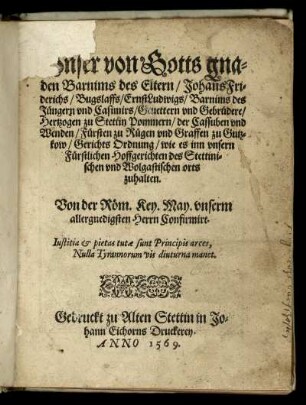 Vnser von Gotts gna-
den Barnims des Eltern / Johans Fri-
derichs / Bugslaffs / Ernst Ludwigs / Barnims des
Jüngern vnd Casimirs / Geuettern vnd Gebrüdere /
Hertzogen zu Stettin Pommern / der Cassuben vnd
Wenden / Fürsten zu Rügen vnd Graffen zu Gutz-
kow / Gerichts Ordnung / wie es inn vnsern
Fürstlichen Hoffgerichten des Stettini-
schen vnd Wolgastischen orts
zuhalten.
Von der Röm. Key. May. vnserm
allergnedigsten Herrn Confirmirt.
Iustitia & pietas tutæ sunt Principis arces,
Nulla Tyrannorum vis diuturna manet.
Gedruckt zu Alten Stettin in Jo-
hann Eichorns Druckerey.
ANNO 1569.